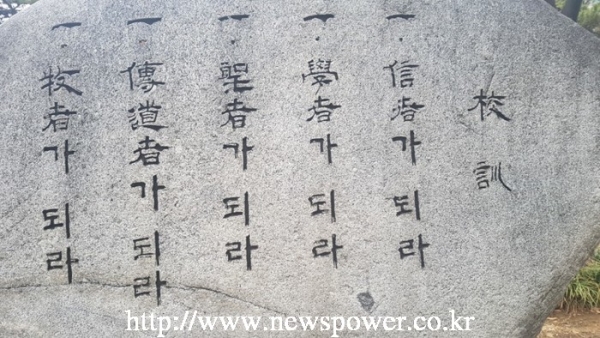 校訓
一. 信者가 되라
一. 學者가 되라
一. 聖者가 되라
一. 傳道者가 되라
一. 牧者가 되라
http://www.newspower.co.kr